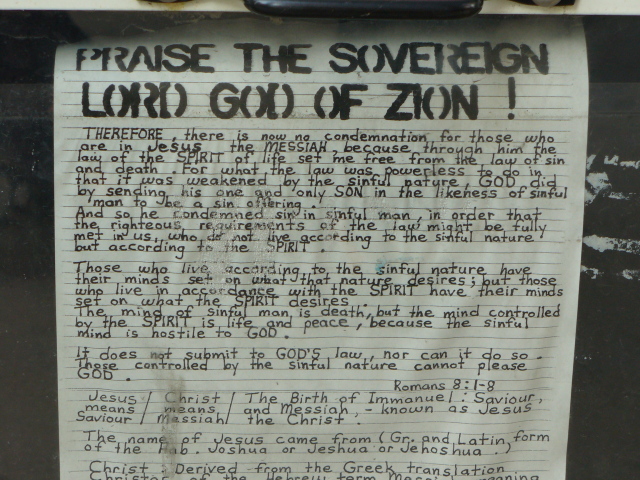 PRAISE THE SOVEREIGN
LORD GOD OF ZION !
THEREFORE, there is now no condemnation for those who
are in Jesus the MESSIAH, because through him the
law of the SPIRIT of life set me free from the law of sin
and death. For what the law was powerless to do in
that it was weakened by the sinful nature, GOD did
by sending his one and only SON in the likeness of sinful
man to be a sin offering.
And so he condemned sin in sinful man, in order that
the righteous requirements of the law might be fully
met in us, who do not live according to the sinful nature
but according to the SPIRIT.
Those who live according to the sinful nature have
their minds set on what that nature desires; but those
who live in accordance with the SPIRIT have their minds
set on what the SPIRIT desires.
The mind of sinful man is death, but the mind controlled
by the SPIRIT is life and peace, because the sinful
mind is hostile to GOD.
It does not submit to GOD'S law, nor can it do so.
Those controlled by the sinful nature cannot please
GOD.
Romans 8:1-8
Jesus / Christ / The Birth of Immanuel: Saviour,
means / means / and Messiah, - known as Jesus
Saviour / Messiah / the Christ.
The name of Jesus came from (Gr. and Latin form
of the Hab. Joshua or Jeshua or Jehoshua.)
Christ: Derived from the Greek translation
of the Hebrew term meaning